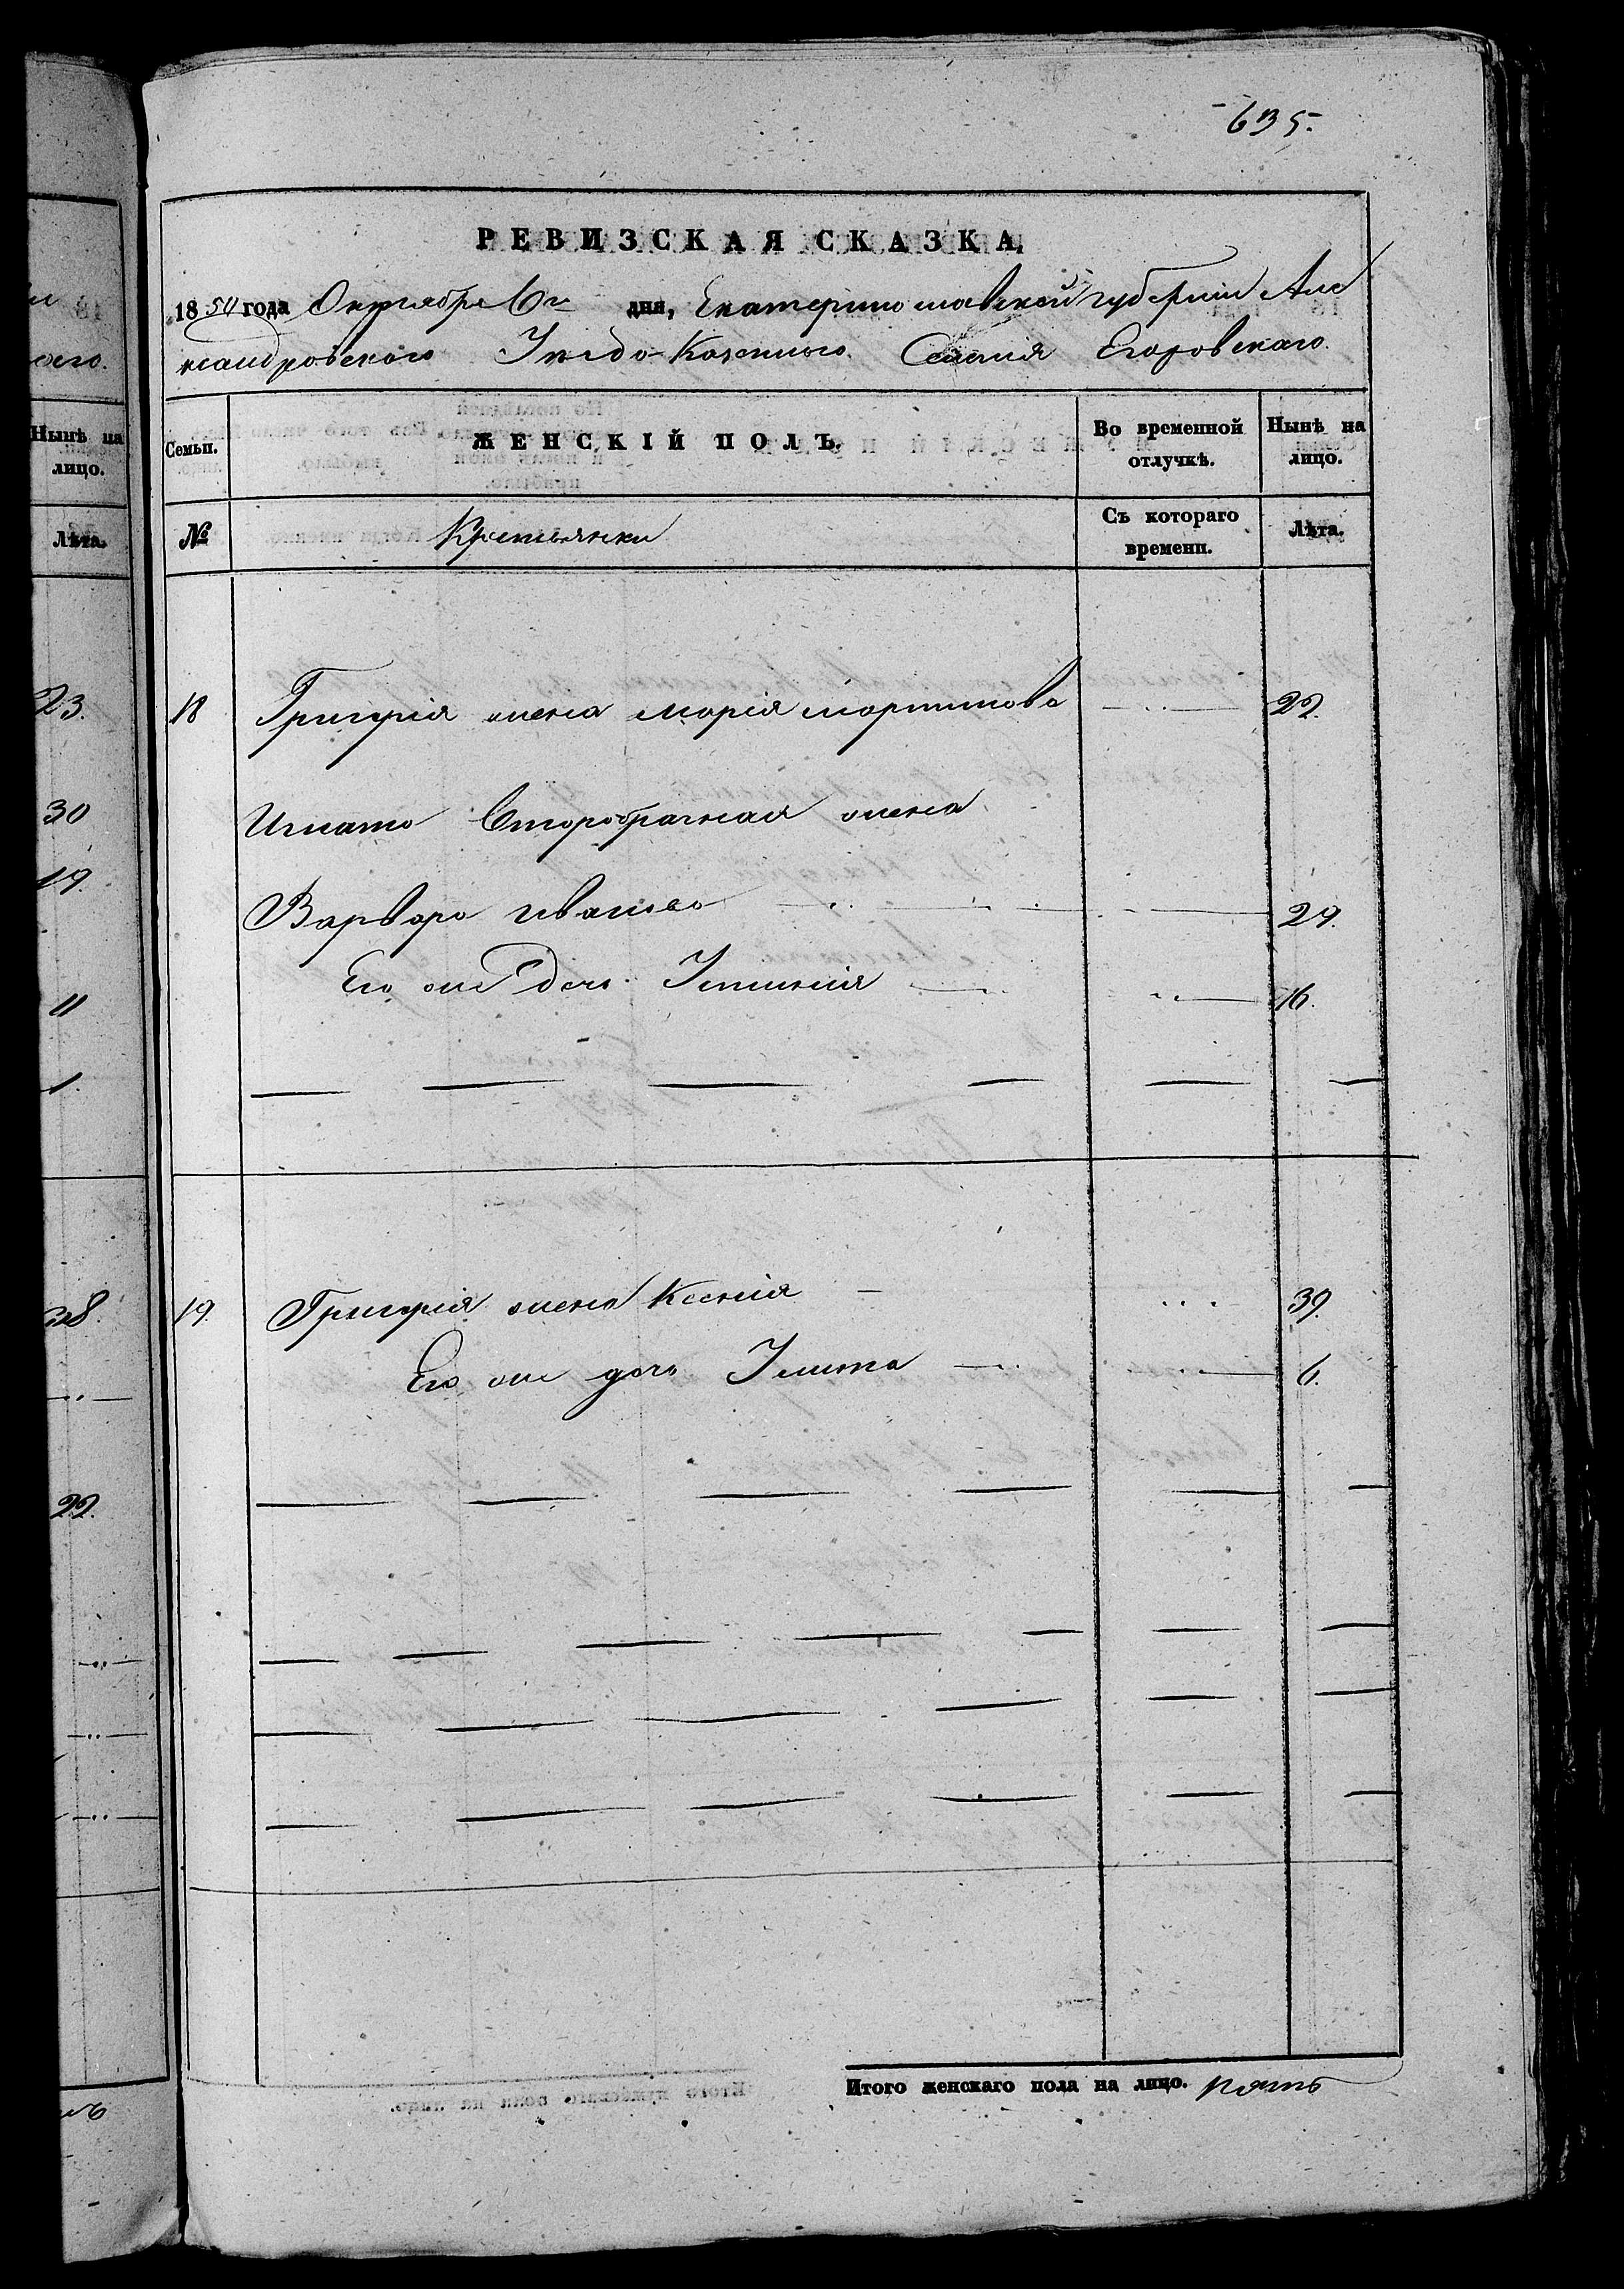 635.
РЕВИЗСКАЯ СКАЗКА,
1854 года Октября 6го дня, Екатеринославской губернии Але
ксандровского Уезда Казенного Селения Егоровскаго.
Семьи. ЖЕНСКІЙ ПОЛЪ. Во временной отлучкѣ. Нынѣ на лицо.
№ Крестьянки Съ котораго времени. Лѣта.
18 Григорія жена Марія Мартинова 22.
Игната Второбрачная жена
Варвара Иванова 29.
Его же дочь 16.
19. Григорія жена Ксенія 39.
Его же дочь 6.
Итого женскаго пола на лицо. пять
Нынѣ на
лицо.
Лѣта.
23.
30
19.
11
1
28.
22.